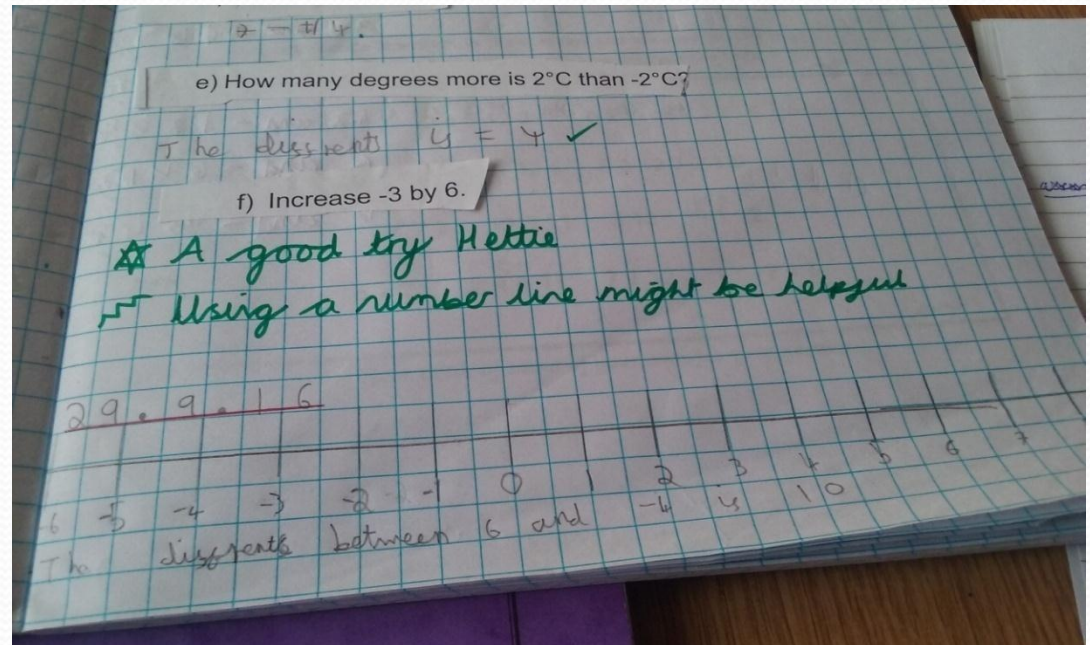 e) How many degrees more is 2°C than -2°C?
The dissrents is = 4 ✓
f) Increase -3 by 6.
A good try Hettie
Using a number line might be helpful
29.9.16
6 -5 -4 -3 -2 -1 0 1 2 3 4 5 6 7
The dissrents between 6 and -4 is 10
answer